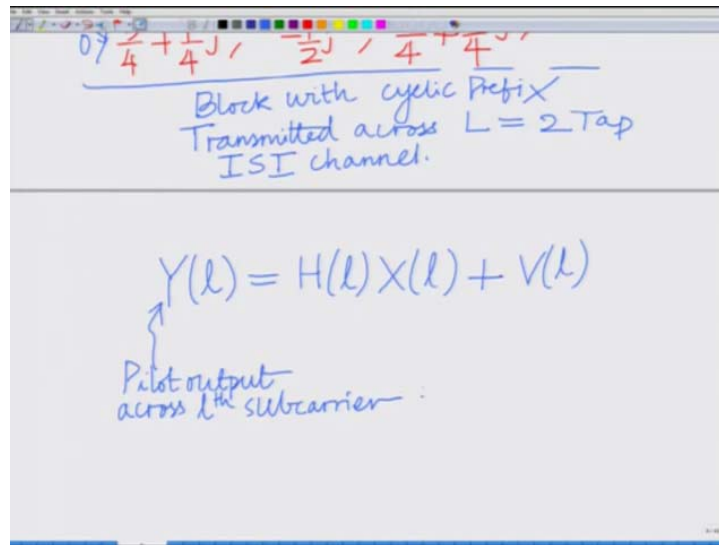 Block with cyclic Prefix
Transmitted across L = 2 Tap
ISI channel.
Y(l) = H(l) X(l) + V(l)
Pilot output
across lth subcarrier :